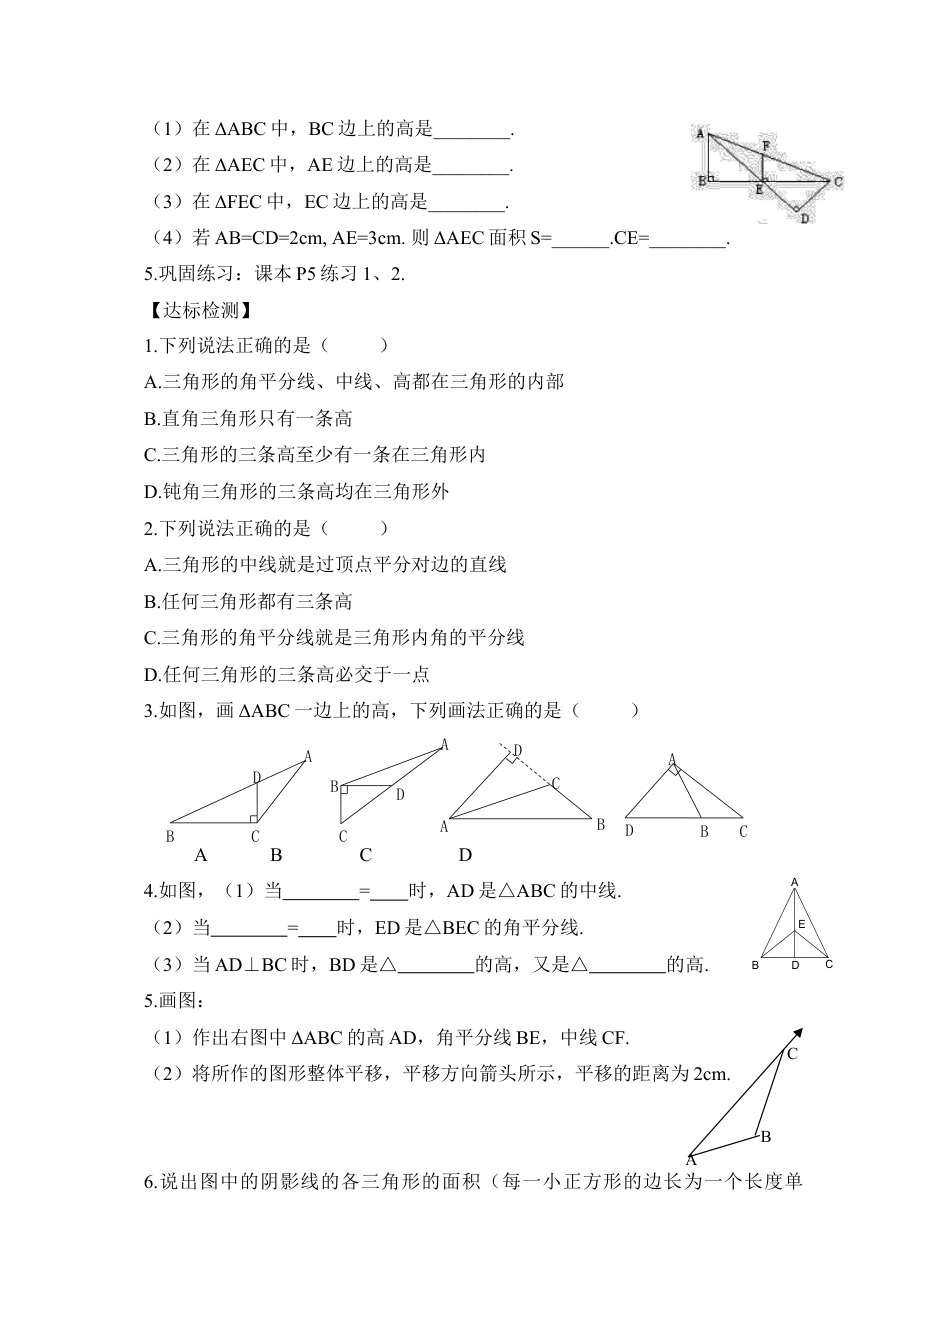 （1）在 ΔABC 中，BC 边上的高是________.
（2）在 ΔAEC 中，AE 边上的高是________.
（3）在 ΔFEC 中，EC 边上的高是________.
（4）若 AB=CD=2cm, AE=3cm. 则 ΔAEC 面积 S=______.CE=________.
A
F
B
E
C
D
5.巩固练习：课本 P5 练习 1、2.
【达标检测】
1.下列说法正确的是（　　）
A.三角形的角平分线、中线、高都在三角形的内部
B.直角三角形只有一条高
C.三角形的三条高至少有一条在三角形内
D.钝角三角形的三条高均在三角形外
2.下列说法正确的是（　　）
A.三角形的中线就是过顶点平分对边的直线
B.任何三角形都有三条高
C.三角形的角平分线就是三角形内角的平分线
D.任何三角形的三条高必交于一点
3.如图，画 ΔABC 一边上的高，下列画法正确的是（　　）
A D B C
A B D C
D C A B
A D B C
A B C D
4.如图，（1）当 ________=____ 时，AD 是△ABC 的中线.
（2）当________=____ 时，ED 是△BEC 的角平分线.
（3）当 AD⊥BC 时，BD 是△________ 的高，又是△________ 的高.
A
E
B D C
5.画图：
（1）作出右图中 ΔABC 的高 AD，角平分线 BE，中线 CF.
（2）将所作的图形整体平移，平移方向箭头所示，平移的距离为 2cm.
C
B
A
6.说出图中的阴影线的各三角形的面积（每一小正方形的边长为一个长度单